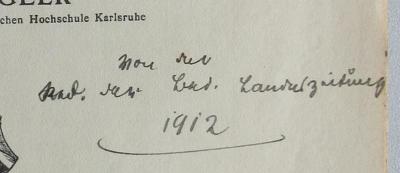 GLER
chen Hochschule Karlsruhe
Von der
Red. der Bad. Landeszeitung
1912